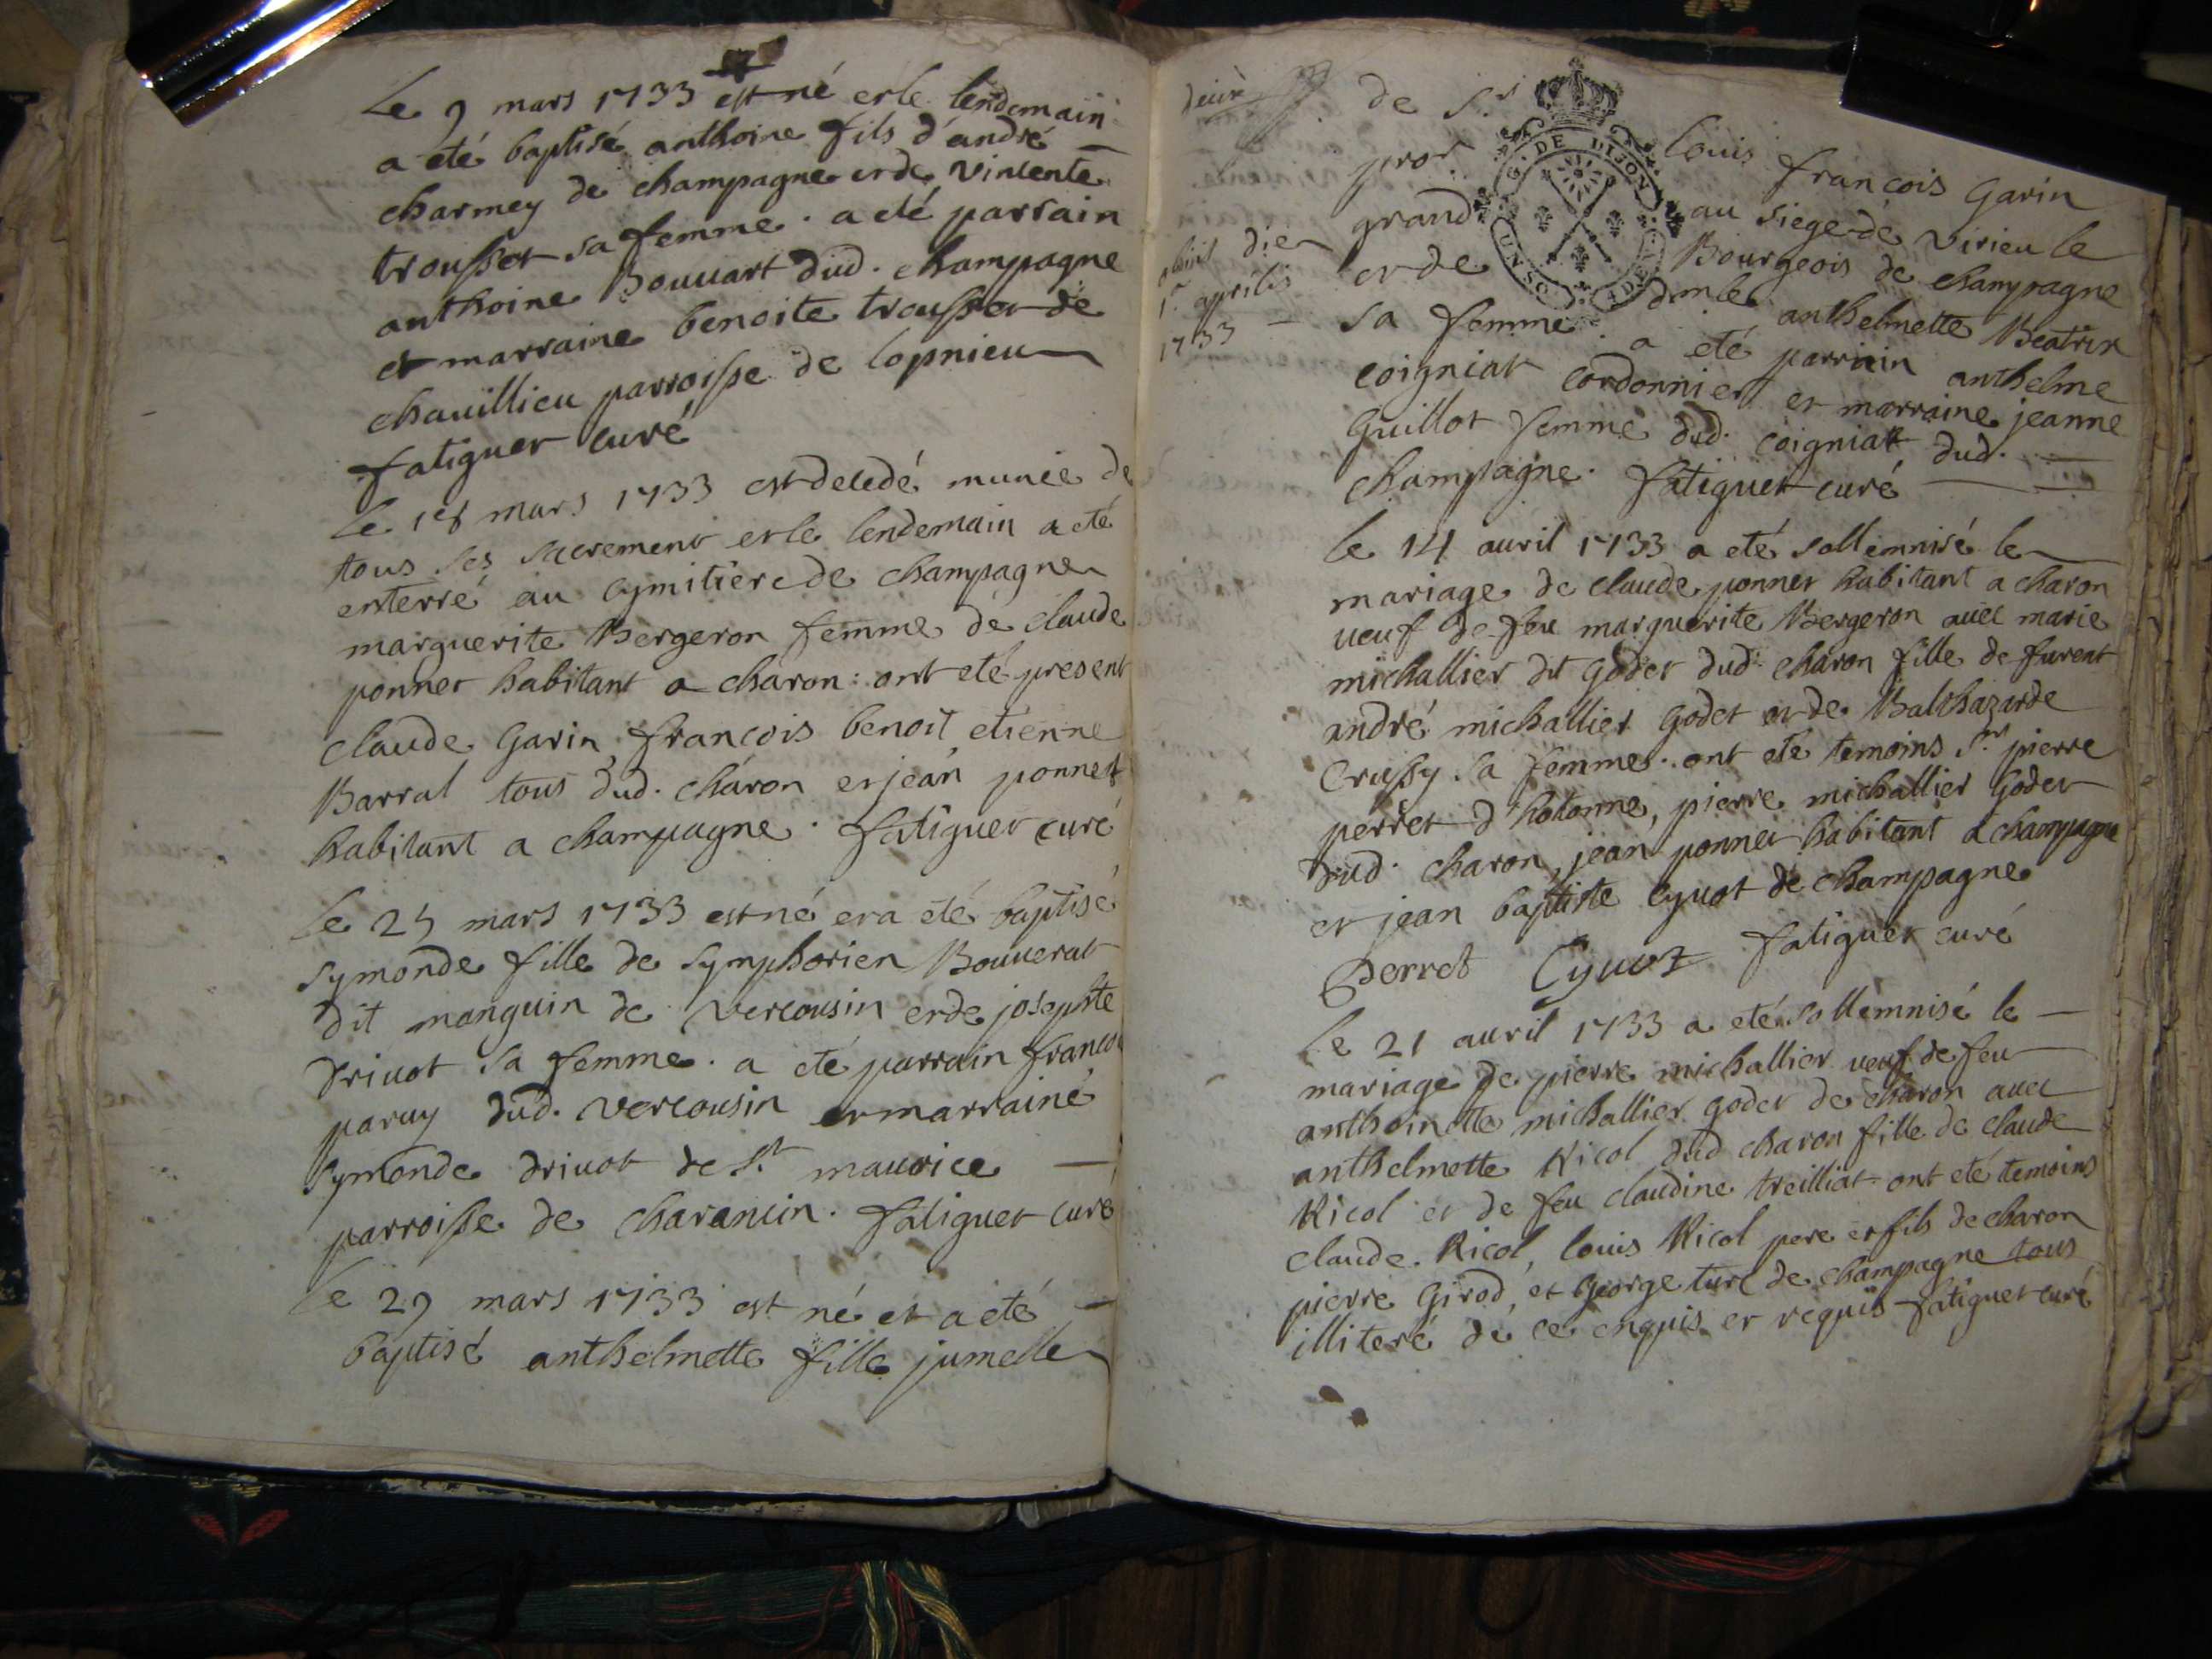 Le 9 mars 1733 est né et le lendemain
a eté baptisé anthoine fils d'andré
charmey de champagne et de vincente
trousset sa femme. a eté parrain
anthoine Bouuart dud. champagne
et marraine benoite trousset de
chauillieu parroisse de lopnieu
fatiguet curé
le 18 mars 1733 est decedé munie de
tous ses sacrement et le lendemain a eté
enterré au cymitière de champagne
marguerite Bergeron femme de claude
ponnet habitant a charon: ont eté present
claude Garin, francois benoit, etienne
Barral tous dud. charon et jean ponnet
habitant a champagne. fatiguet curé
le 25 mars 1733 est né et a eté baptisé
symonde fille de symphorien Bouuerat
dit manguin de vercousin et de josephte
driuot sa femme. a eté parrain francois
paruy dud. vercousin et marraine
symonde driuot de St maurice
parroisse de charancin. fatiguet curé
le 29 mars 1733 est né et a eté
baptisé anthelmette fille jumelle
de Sr louis francois Garin
procr au siege de virieu le
grand Bourgeois de champagne
et de dmle anthelmette Beatrix
sa femme. a eté parrain anthelme
coigniat cordonnier et marraine jeanne
Guillot femme dud. coigniat dud.
champagne. fatiguet curé
G. DE DIJON
UN SO
DEUX
die
1a aprilis
1733
le 14 auril 1733 a eté sollemnisé le
mariage de claude ponnet habitant a charon
ueuf de feu marguerite Bergeron auec marie
michallier dit godet dud. charon fille de fureat
andré michallier godet et de Balthazarde
Crussy sa femme. ont eté temoins Sr pierre
perret d'hotonne, pierre michallier Godet
dud. charon, jean ponnet habitant a champagne
et jean baptiste Cyuot de champagne
Perret Cyuot fatiguet curé
le 21 auril 1733 a eté sollemnisé le
mariage de pierre michallier ueuf de feu
anthoinette michallier godet de charon auec
anthelmette Nicol dud charon fille de claude
Nicol et de feu claudine treilliat ont eté temoins
claude Nicol, louis Nicol pere et fils de charon
pierre Girod, et George turc de champagne tous
illiteré de ce enquis et requis fatiguet curé